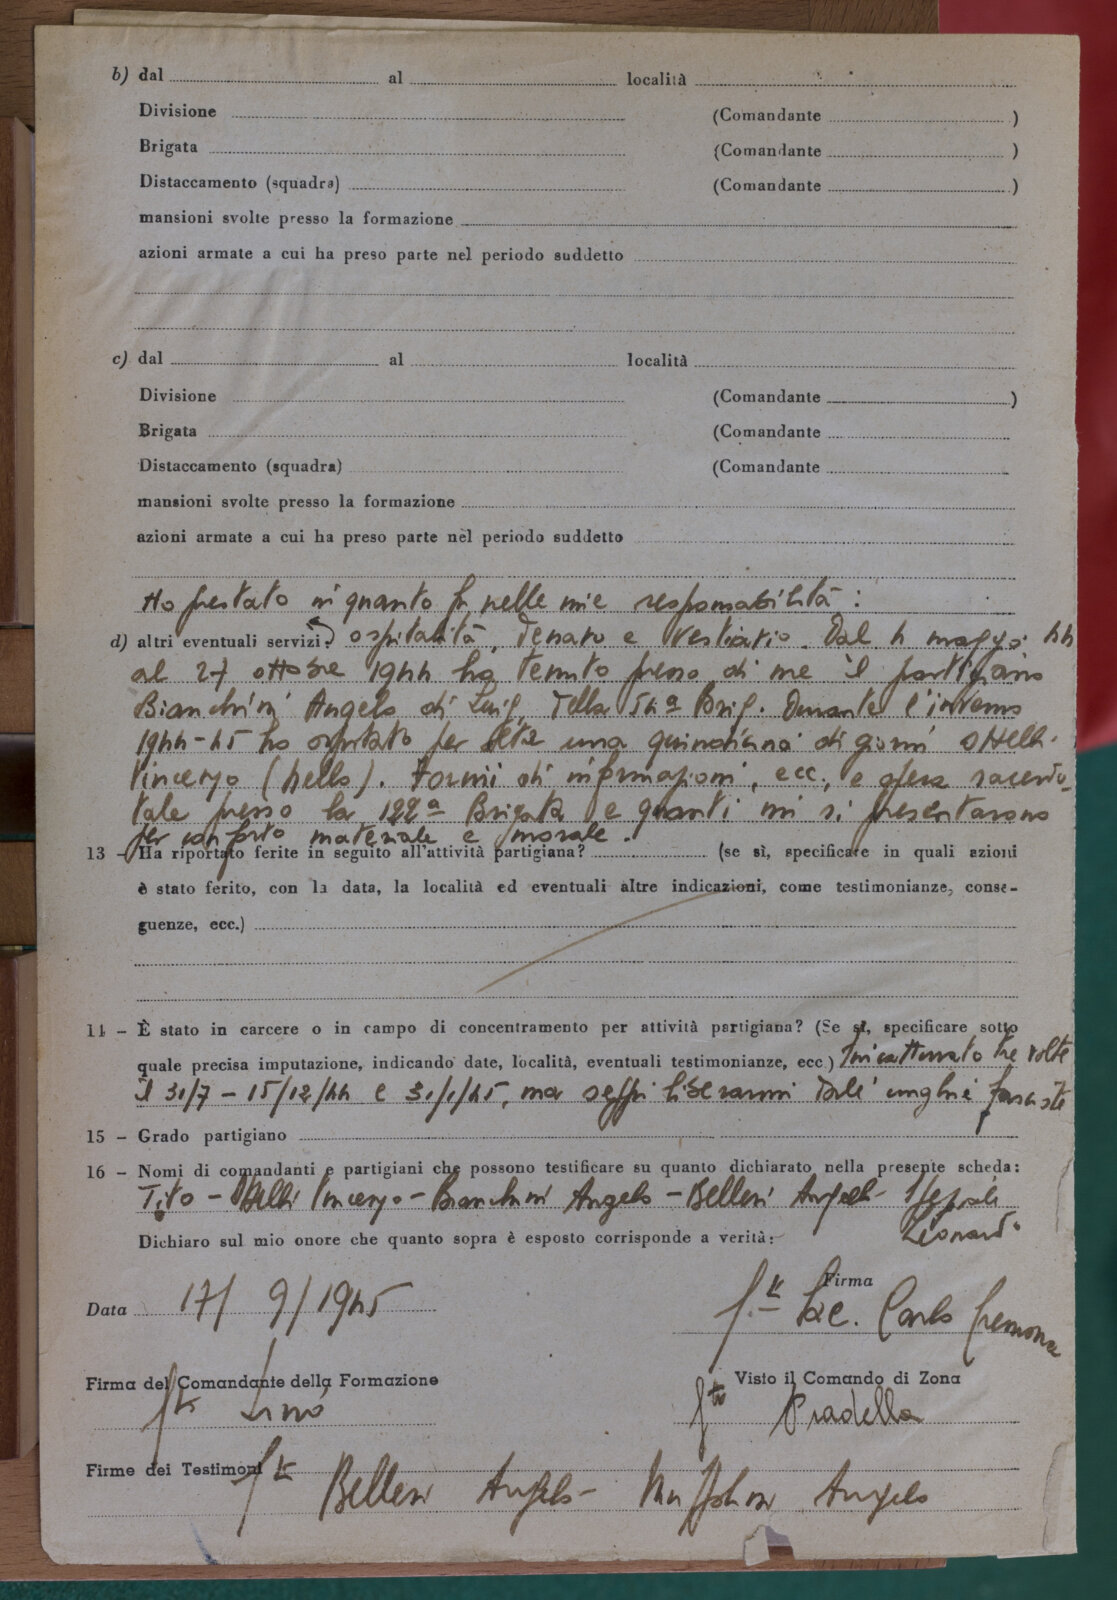 b) dal al località
Divisione (Comandante )
Brigata (Comandante )
Distaccamento (squadra) (Comandante )
mansioni svolte presso la formazione
azioni armate a cui ha preso parte nel periodo suddetto
c) dal al località
Divisione (Comandante )
Brigata (Comandante
Distaccamento (squadra) (Comandante
mansioni svolte presso la formazione
azioni armate a cui ha preso parte nel periodo suddetto
Ho prestato in quanto fu nelle mie responsabilità:
d) altri eventuali servizi: ospitalità, denaro e vestiario. Dal 4 maggio 44
al 27 ottobre 1944 ho tenuto presso di me il partigiano
Bianchini Angelo di Luigi della 54ª Brig. Durante l'inverno
1944-45 ho ospitato per una quindicina di giorni
Vincenzo (hello). Fornii di informazioni, ecc., e opera sacerdo-
tale presso la 122ª Brigata e quanti mi si presentarono
per conforto materiale e morale.
13 - Ha riportato ferite in seguito all'attività partigiana? (se sì, specificare in quali azioni
è stato ferito, con la data, la località ed eventuali altre indicazioni, come testimonianze, conse-
guenze, ecc.)
14 - È stato in carcere o in campo di concentramento per attività partigiana? (Se sì, specificare sotto
quale precisa imputazione, indicando date, località, eventuali testimonianze, ecc.) tre volte
il 31/7 - 15/12/44 e 31/1/45, ma seppi liberarmi dalle unghie fasciste
15 - Grado partigiano
16 - Nomi di comandanti e partigiani che possono testificare su quanto dichiarato nella presente scheda:
Tito - Belli Vincenzo - Bianchini Angelo - Belleri Angelo -
Leonardo
Dichiaro sul mio onore che quanto sopra è esposto corrisponde a verità:
Firma
Data 17/ 9/1945 Sac. Carlo Cremona
Firma del Comandante della Formazione Visto il Comando di Zona
fto Lino fto Pradella
Firme dei Testimoni fto
Belleri Angelo - Angelo